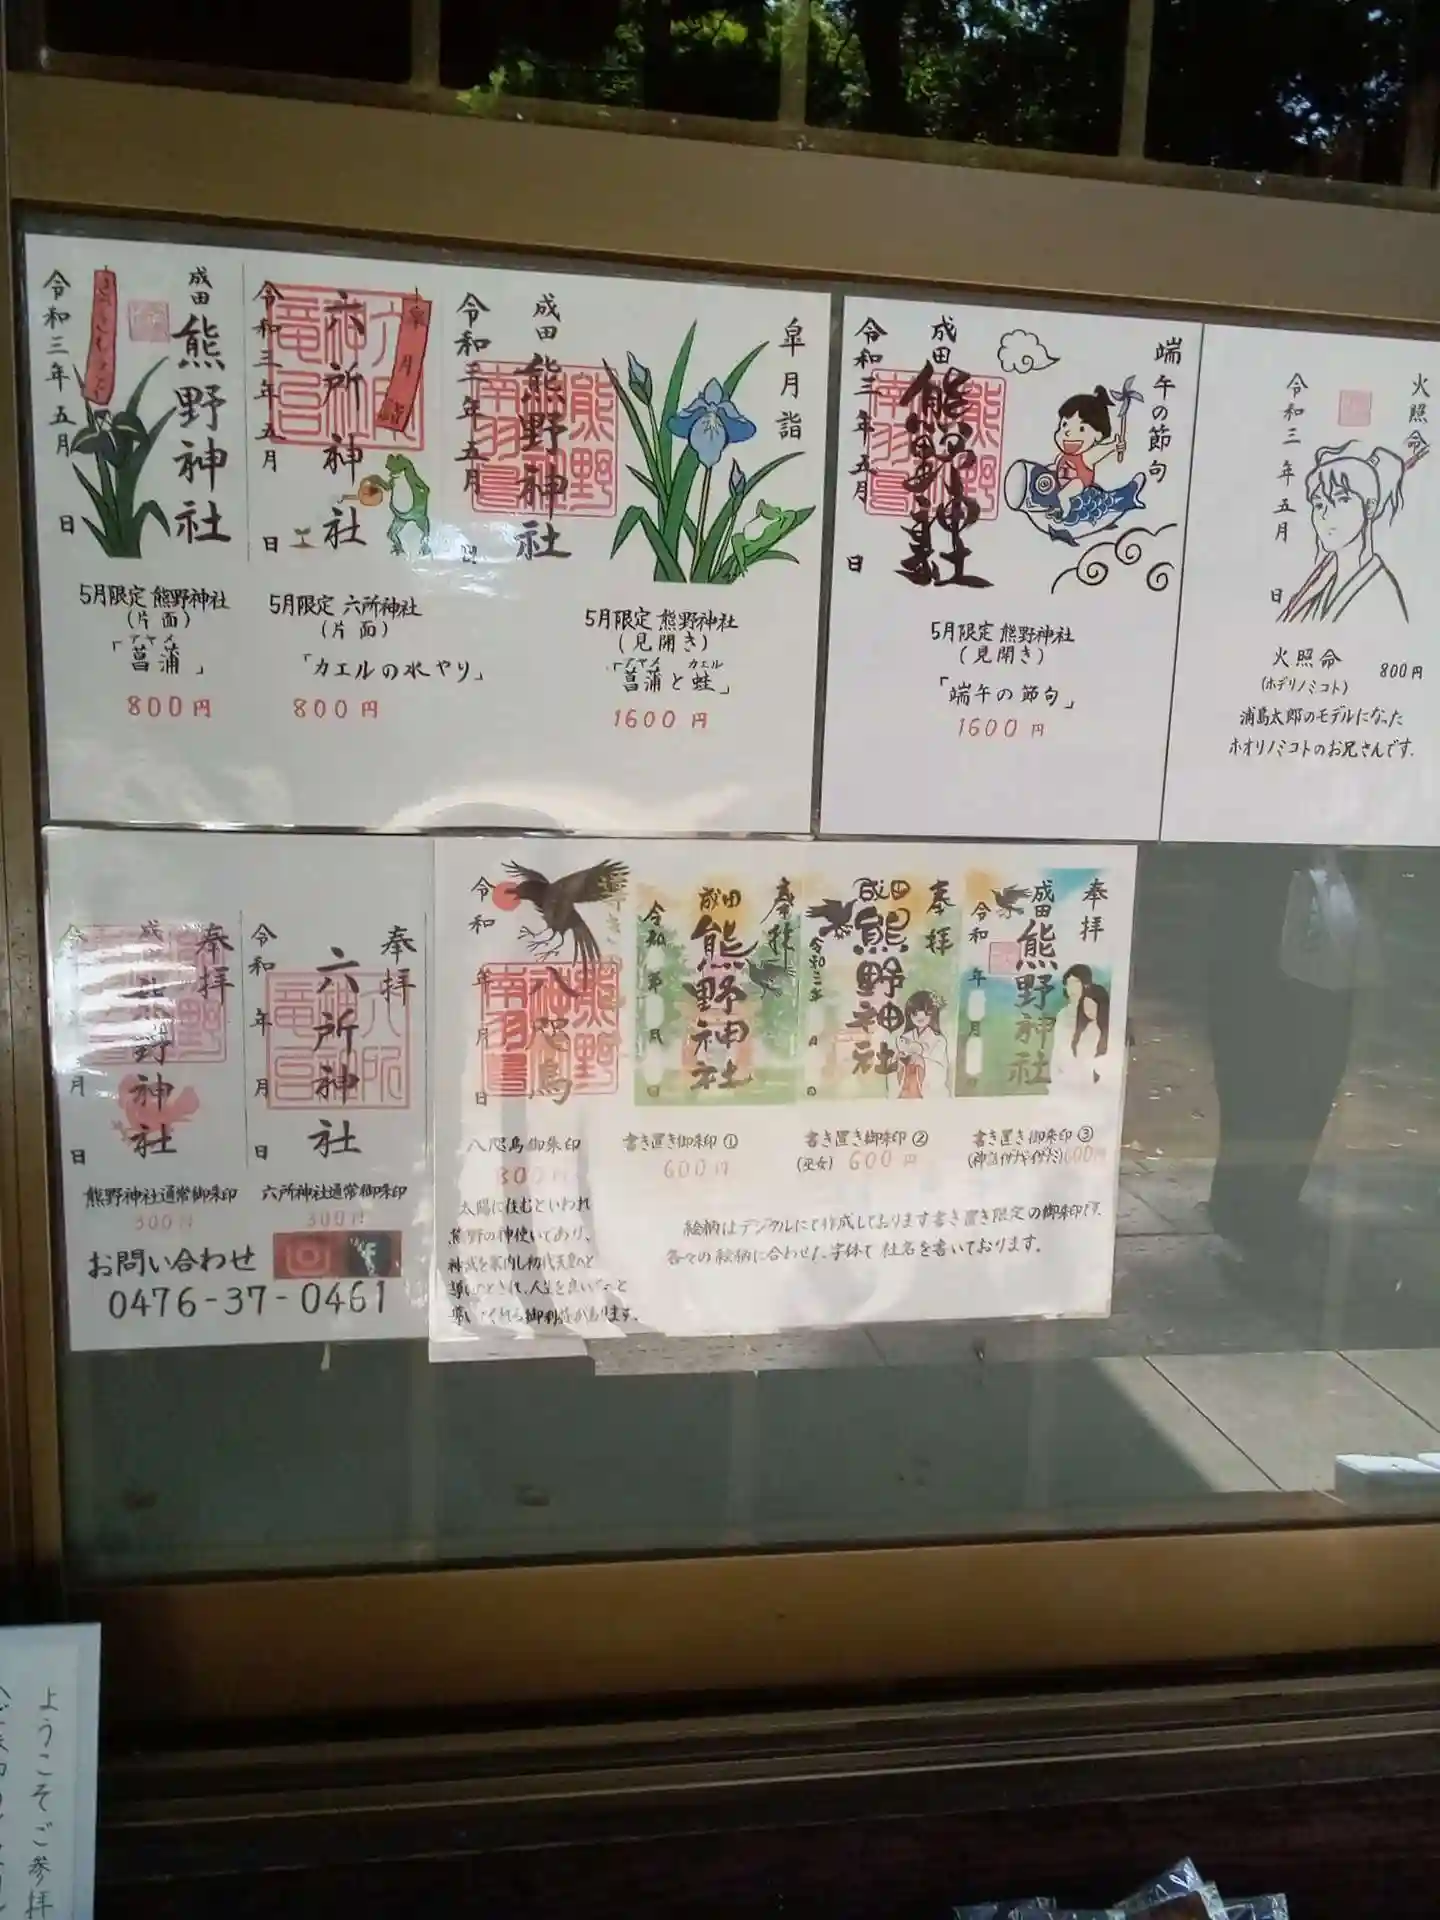 成田
熊野神社
令和三年五月
日
5月限定 熊野神社
(片面)
アヤメ
「菖蒲」
800円
皐月詣
六所神社
令和三年五月
日
5月限定 六所神社
(片面)
「カエルの水やり」
800円
皐月詣
成田
熊野神社
令和三年五月
5月限定 熊野神社
(見開き)
アヤメ カエル
「菖蒲と蛙」
1600円
端午の節句
成田
熊野神社
令和三年五月
日
5月限定 熊野神社
(見開き)
「端午の節句」
1600円
火照命
令和三年五月
日
火照命 800円
(ホデリノミコト)
浦島太郎のモデルになった
ホオリノミコトのお兄さんです.
奉拝
野神社
月
日
熊野神社通常御朱印
300円
奉拝
六所神社
令和
年
月
日
六所神社通常御朱印
300円
お問い合わせ
0476-37-0461
八咫烏
令和
年
月
日
八咫烏御朱印
800円
太陽に住むといわれ
熊野の神使いであり、
奉拝
成田
熊野神社
令和
日
書き置き御朱印①
600円
奉拝
成田
熊野神社
書き置き御朱印②
(巫女) 600円
奉拝
成田
熊野神社
令和
年
月
書き置き御朱印③
(神話イザナギイザナミ)600円
絵柄はデジタルにて作成しております書き置き限定の御朱印です.
各々の絵柄に合わせた字体で社名を書いております。
ようこそご参拝